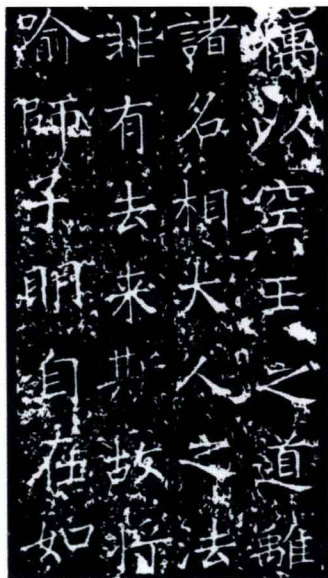 竊以空王之道離
諸名相大人之法
非有去来斯故将
喻師子明自在如